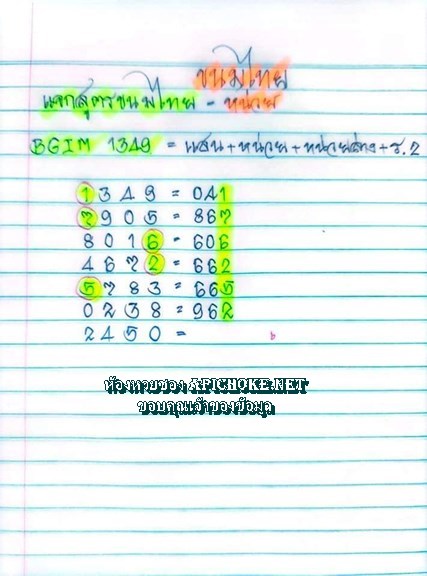 ขนมไทย
แจกสูตรขนมไทย - หน่วย
BGIM 1349 = แสน + หน่วย + หน่วยล่าง + ร.2
1349 = 041
7905 = 867
8016 = 606
4672 = 662
5783 = 665
0238 = 962
2450 =
ห้องหวยซอง APICHOKE.NET
ขอบคุณเจ้าของข้อมูล